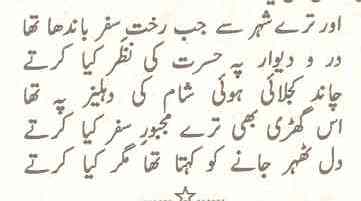 اور ترے شہر سے جب رختِ سفر باندھا تھا
در و دیوار پہ حسرت کی نظر کیا کرتے
چاند کجلائی ہوئی شام کی دہلیز پہ تھا
اس گھڑی بھی ترے مجبورِ سفر کیا کرتے
دل ٹھہر جانے کو کہتا تھا مگر کیا کرتے